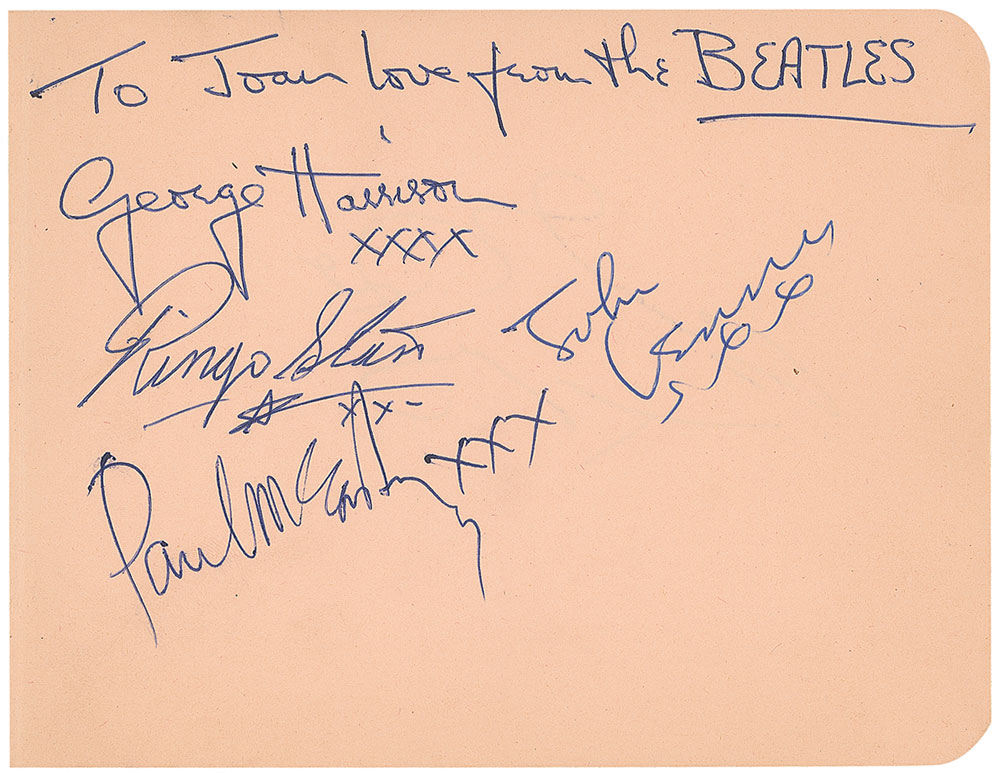 To Joan love from the BEATLES
George Harrison
xxxx
Ringo Starr
xx-
John Lennon
Paul McCartney xxx